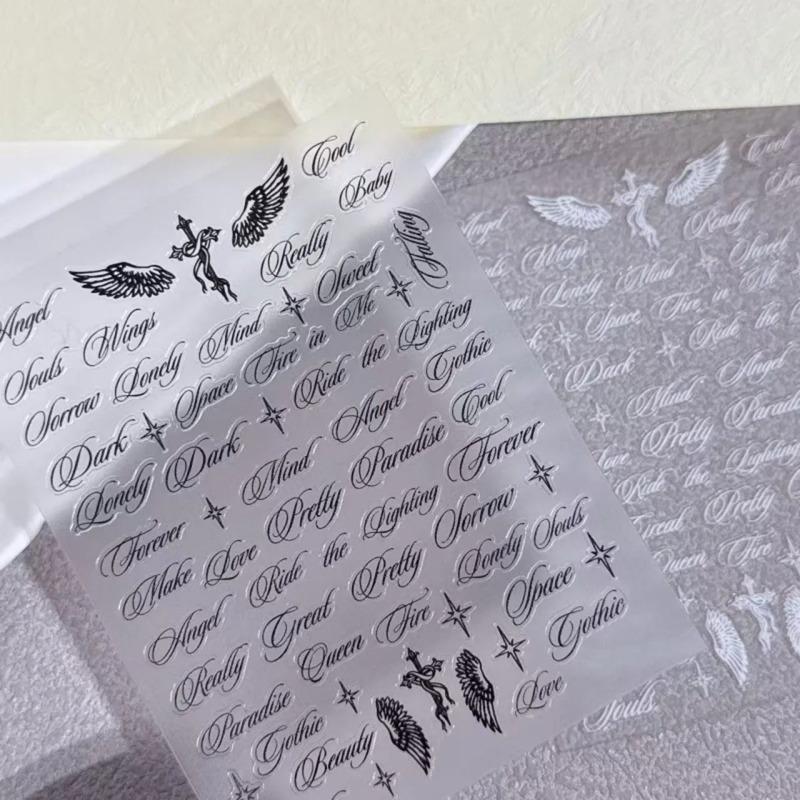 Cool
Baby
Really
Falling
Angel
Souls Wings
Sorrow Lonely Mind Sweet
Dark Space Fire in Me
Lonely Dark Ride the Lighting
Forever Mind Angel Gothic
Make Love Pretty Paradise Cool
Angel Ride the Lighting Forever
Really Great Pretty Sorrow
Paradise Queen Fire Lonely Souls
Gothic Space
Beauty Love Gothic
Cool
Angel Really
Wings Sweet
Lonely Mind
Space Fire in Me
Dark Ride the
Mind Angel
Love Pretty
Ride the Lighting
Great Pretty
Queen Fire
Souls